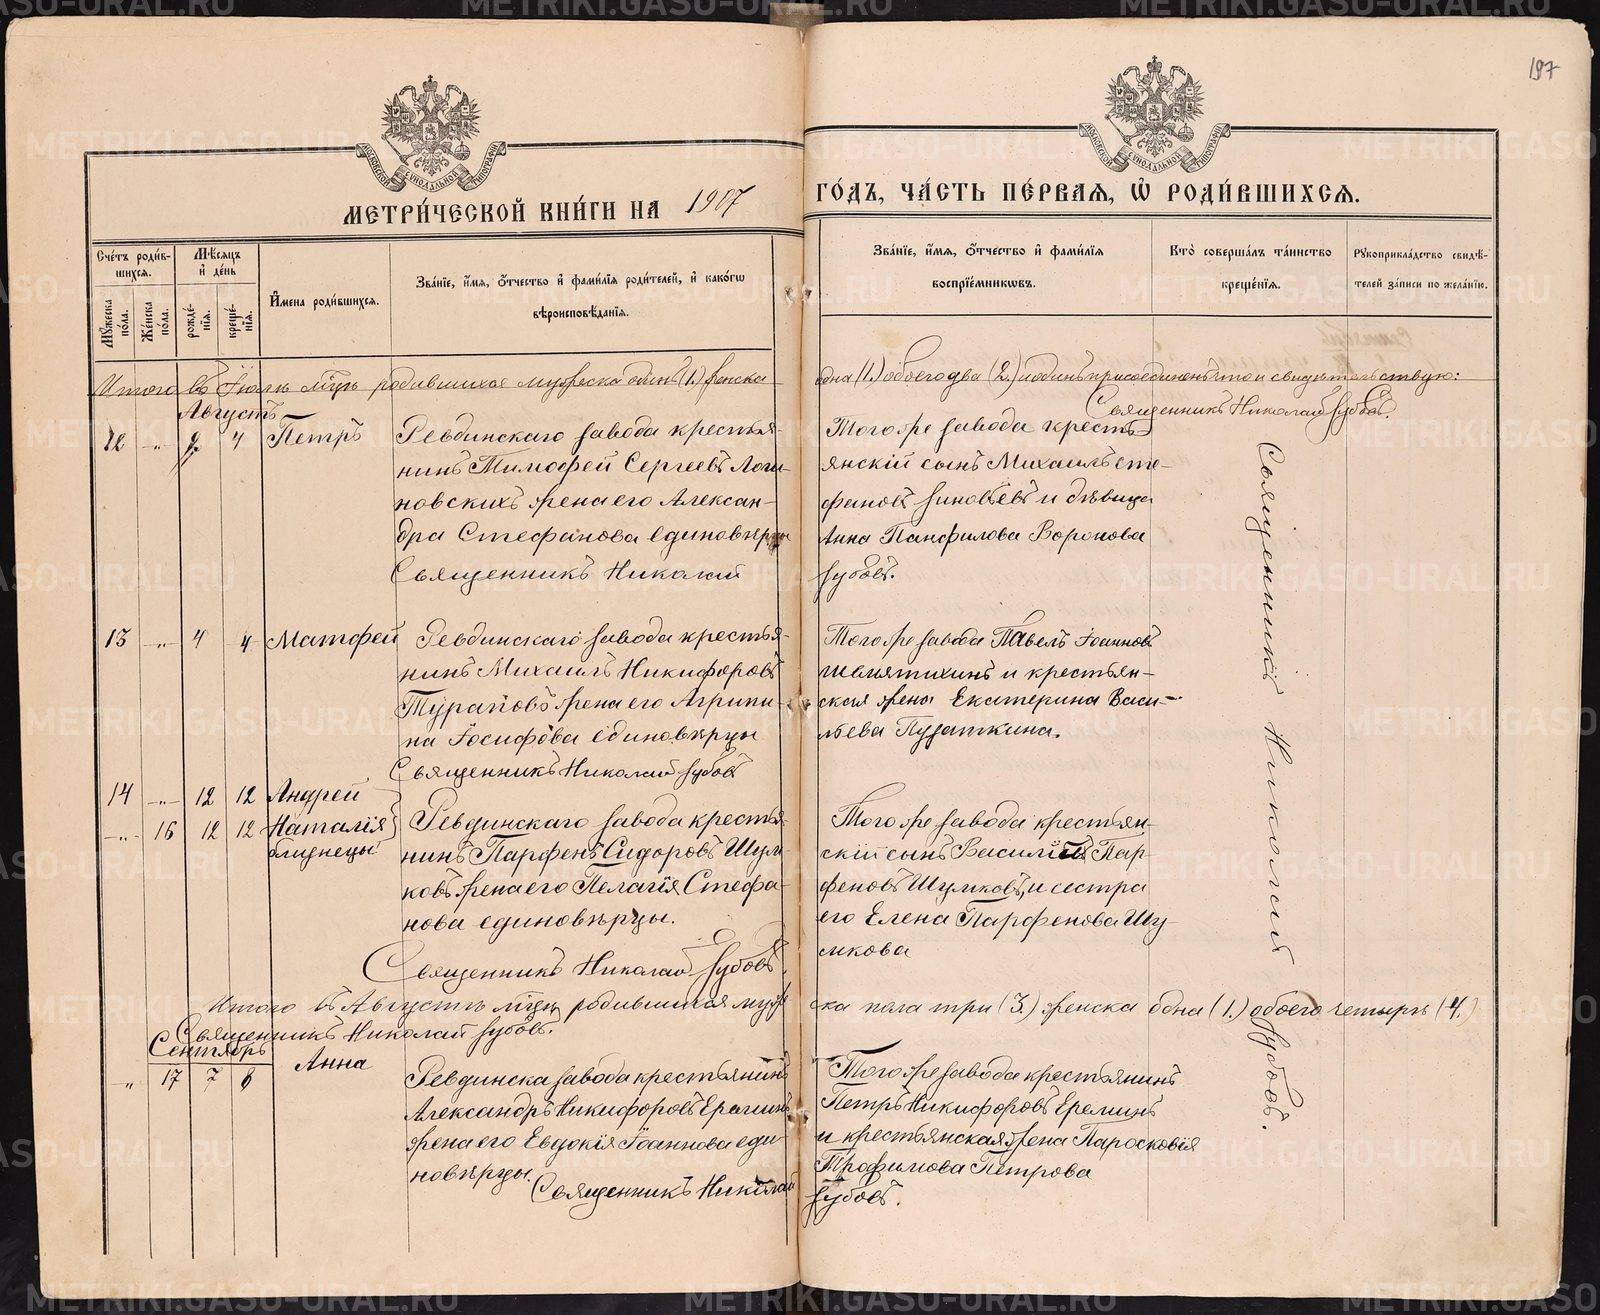 197
МОСКОВСКОЙ СѴНОДАЛЬНОЙ ТИПОГРАФІИ
МОСКОВСКОЙ СѴНОДАЛЬНОЙ ТИПОГРАФІИ
МЕТРИ́ЧЕСКОЙ КНИ́ГИ НА 1907 ГО́ДЪ, ЧА́СТЬ ПЕ́РВАЯ, Ѽ РОДИ́ВШИХСЯ.
Сче́тъ роди́в-
шихся.
Мѣ́сяцъ
и҆ де́нь
Мꙋ́жеска
по́ла.
Же́нска
по́ла.
рожде́-
нїя.
креще́-
нїя.
И҆мена роди́вшихся.
Зва́нїе, и҆́мя, о҆́тчество и҆ фами́лїя роди́телей, и҆ како́гѡ
вѣроисповѣ́данїя.
Зва́нїе, и҆́мя, о҆́тчество и҆ фами́лїя
воспрїе́мникѡвъ.
Кто̀ соверша́лъ та́инство
креще́нїя.
Рꙋкоприкла́дство свидѣ́-
телей за́писи по жела́нїю.
Итого въ Іюлѣ мцѣ родившихся мужеска одинъ (1.) женска одна (1.) обоего два (2.) и одинъ присоединенъ что и свидѣтельствую:
Священникъ Николай Зубовъ.
Августъ
12 -„- 2 4 Петръ
Ревдинскаго завода крестья-
нинъ Тимофей Сергеевъ Логи-
новскихъ жена его Алексан-
дра Стефанова единовѣрцы
Священникъ Николай Зубовъ.
Того же завода кресть-
янскій сынъ Михаилъ Сте-
фановъ Зиновьевъ и дѣвица
Анна Панфилова Воронова
Священникъ Николай Зубовъ.
13 -„- 4 4 Матфей
Ревдинскаго завода крестья-
нинъ Михаилъ Никифоровъ
Турановъ жена его Агрипи-
на Іосифова единовѣрцы
Священникъ Николай Зубовъ
Того же завода Павелъ Іоанновъ
Шемятихинъ и крестьян-
ская жена Екатерина Васи-
льева Пузаткина.
14 -„- 12 12 Андрей
-„- 16 12 12 Наталія
близнецы
Ревдинскаго завода крестья-
нинъ Парфенъ Сидоровъ Шум-
ковъ жена его Пелагія Стефа-
нова единовѣрцы.
Священникъ Николай Зубовъ.
Того же завода крестьян-
скій сынъ Василій Пар-
феновъ Шумковъ, и сестра
его Елена Парфенова Шу-
мкова
Итого въ Августѣ мцѣ родившихся мужеска пола три (3.) женска одна (1.) обоего четыре (4.)
Священникъ Николай Зубовъ.
Сентябрь
„ 17 7 8 Анна
Ревдинска завода крестьянинъ
Александръ Никифоровъ Ереминъ
жена его Евдокія Іоаннова еди-
новѣрцы.
Священникъ Николай Зубовъ.
Того же завода крестьянинъ
Петръ Никифоровъ Ереминъ
и крестьянская жена Паросковія
Трофимова Петрова